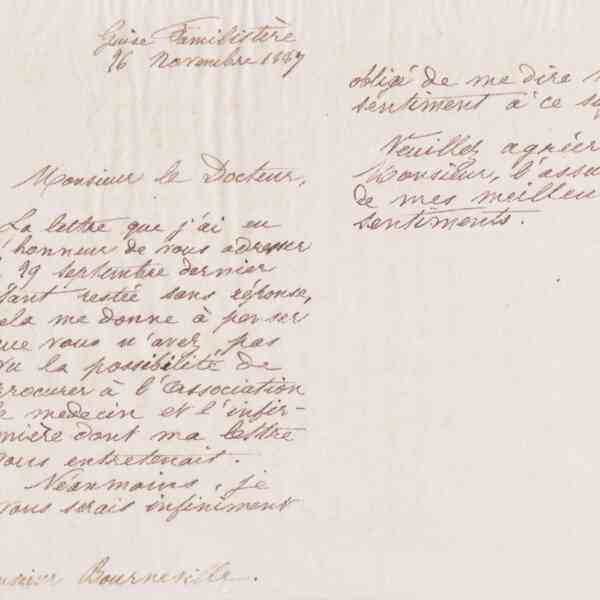 Guise Familistère
26 novembre 1887
Monsieur le Docteur,
La lettre que j'ai eu
l'honneur de vous adresser
29 septembre dernier
étant restée sans réponse,
cela me donne à penser
que vous n'avez pas
vu la possibilité de
procurer à l'Association
le medecin et l'infir-
mière dont ma lettre
vous entretenait.
Néanmoins, je
vous serais infiniment
Bourneville.
obligé de me dire
sentiment à ce
Veuillez agréer
Monsieur, l'assu
de mes meilleu
sentiments.